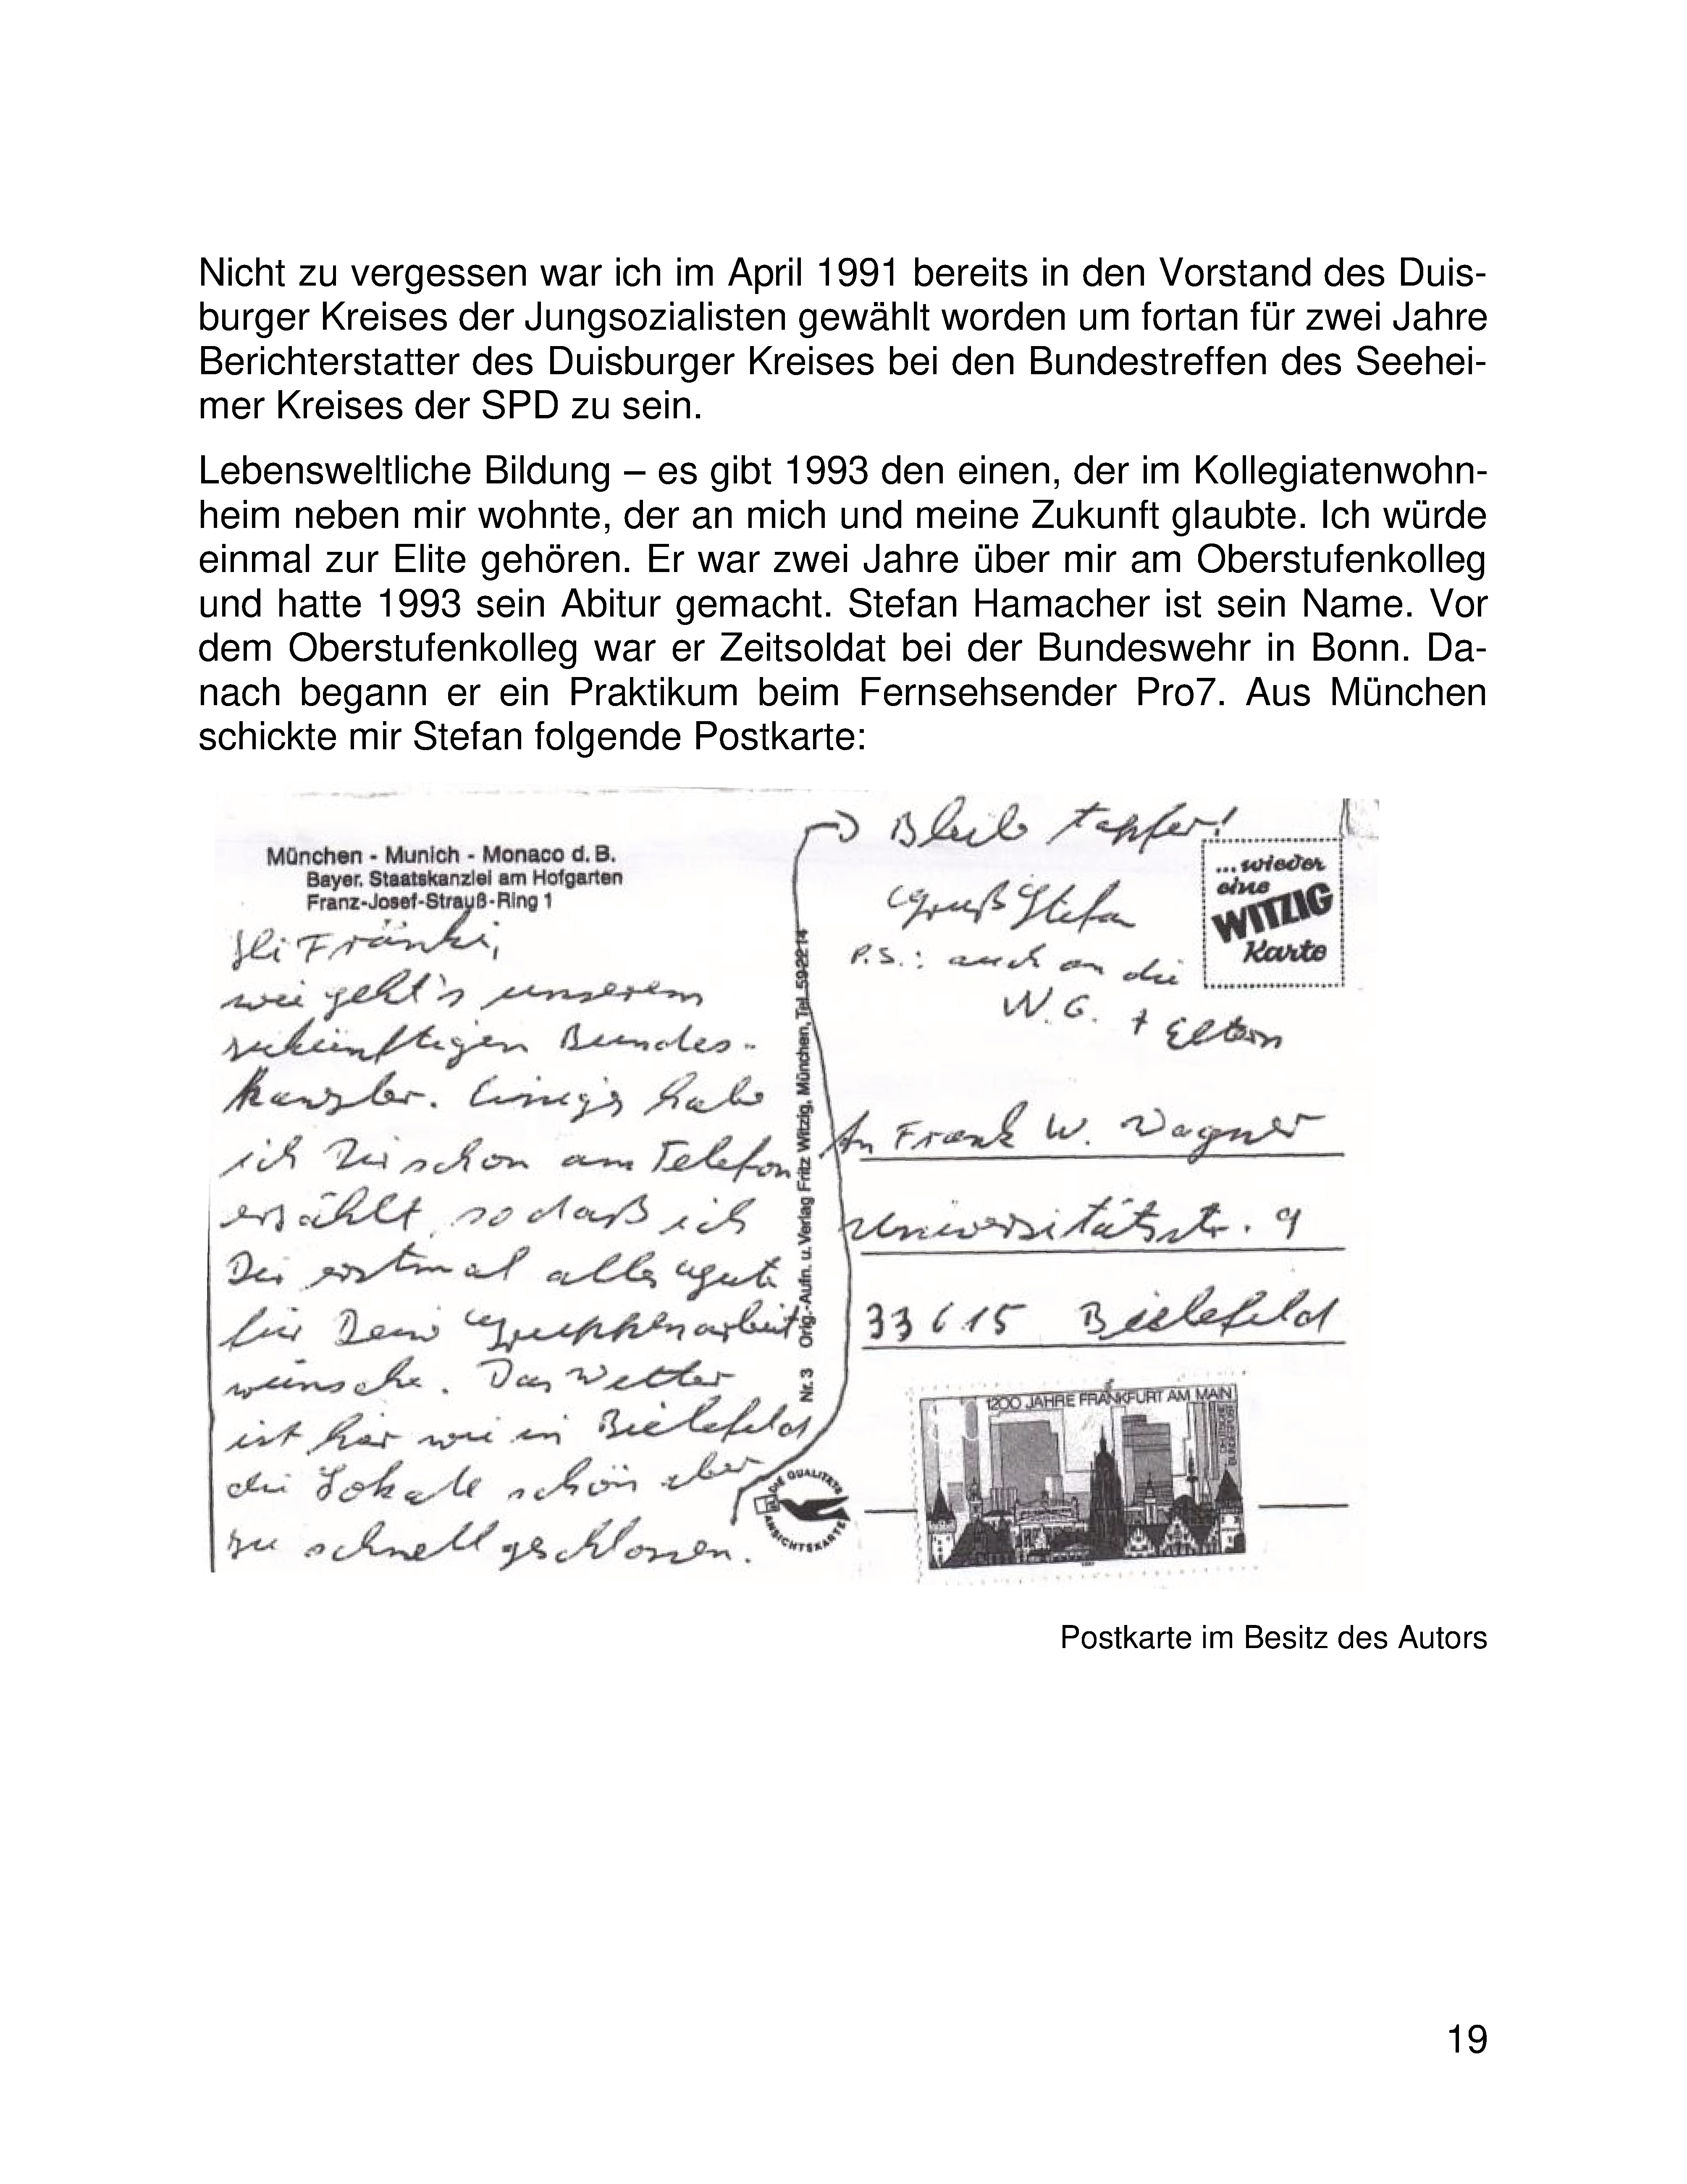 Nicht zu vergessen war ich im April 1991 bereits in den Vorstand des Duis-
burger Kreises der Jungsozialisten gewählt worden um fortan für zwei Jahre
Berichterstatter des Duisburger Kreises bei den Bundestreffen des Seehei-
mer Kreises der SPD zu sein.
Lebensweltliche Bildung – es gibt 1993 den einen, der im Kollegiatenwohn-
heim neben mir wohnte, der an mich und meine Zukunft glaubte. Ich würde
einmal zur Elite gehören. Er war zwei Jahre über mir am Oberstufenkolleg
und hatte 1993 sein Abitur gemacht. Stefan Hamacher ist sein Name. Vor
dem Oberstufenkolleg war er Zeitsoldat bei der Bundeswehr in Bonn. Da-
nach begann er ein Praktikum beim Fernsehsender Pro7. Aus München
schickte mir Stefan folgende Postkarte:
München - Munich - Monaco d. B.
Bayer. Staatskanzlei am Hofgarten
Franz-Josef-Strauß-Ring 1
Hi Fränki,
wie geht's unserem
zukünftigen Bundes-
kanzler. Einiges habe
ich Dir schon am Telefon
erzählt, so daß ich
Dir erstmal alles gute
für Deine Gruppenarbeit
wünsche. Das Wetter
ist hier wie in Bielefeld
die Lokale schön aber
zu schnell geschlossen.
Nr. 3 Orig.-Aufn. u. Verlag Fritz Witzig, München, Tel. 592214
DIE QUALITÄTS
ANSICHTSKARTE
Bleib tapfer!
Gruß Stefan
P.S.: auch an die
W.G. + Eltern
...wieder
eine
WITZIG
Karte
An Frank W. Wagner
Universitätsstr. 9
33615 Bielefeld
1200 JAHRE FRANKFURT AM MAIN
DEUTSCHE
BUNDESPOST
Postkarte im Besitz des Autors
19